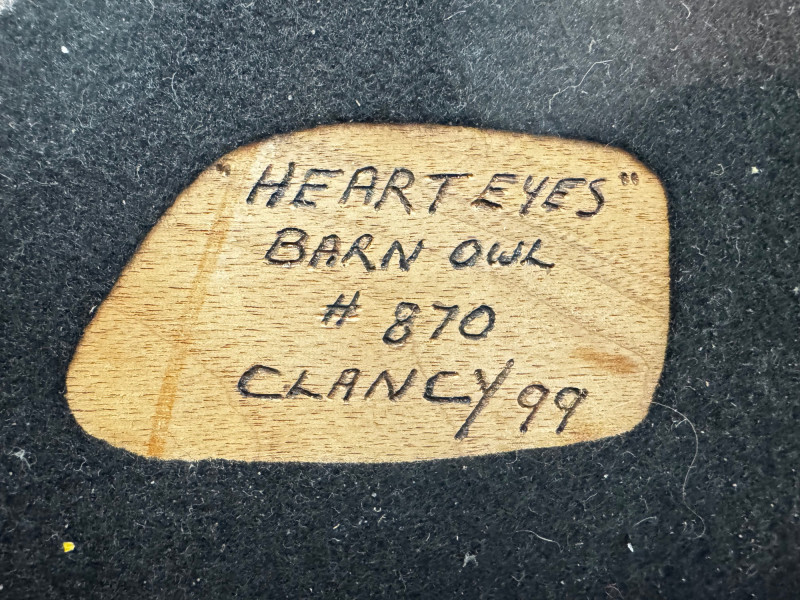 "HEART EYES"
BARN OWL
# 870
CLANCY/99